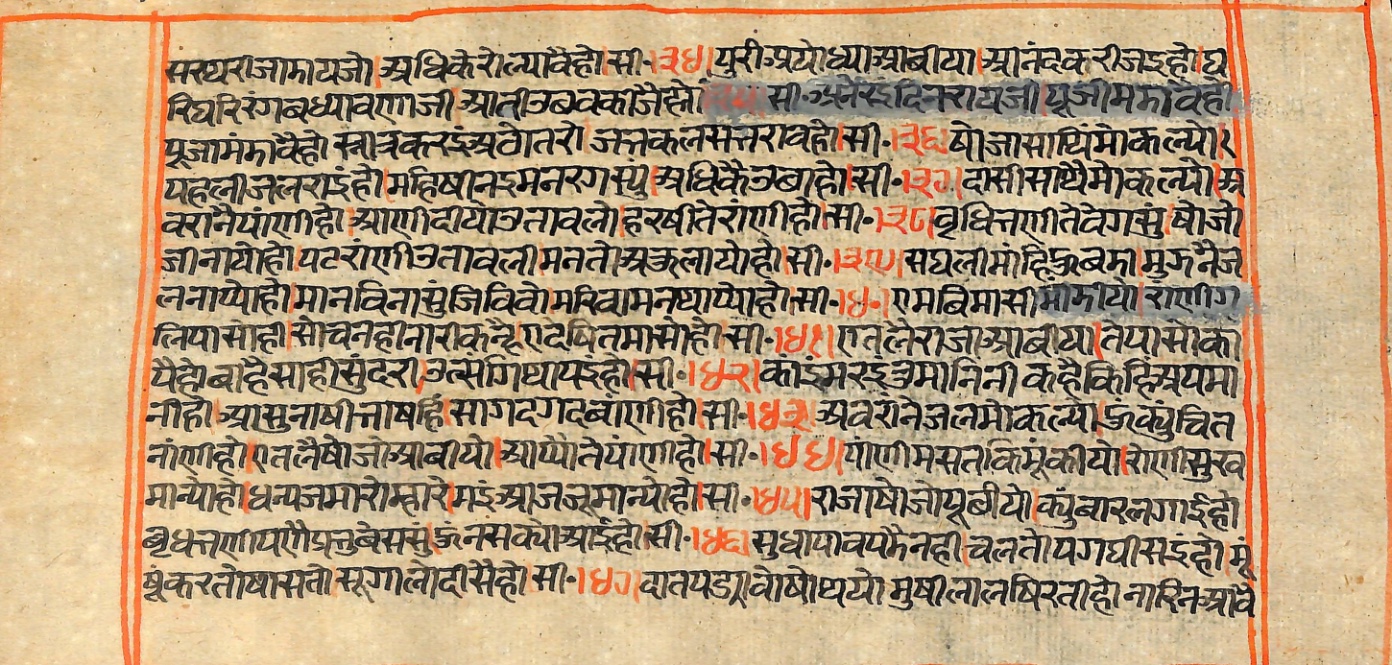 मरथरीजामायजो। अधिकेरोल्यावैहो।सी॰।३४। पुरीअयोध्याआवीया। आनंदकरीजइहो। घ
रिघरिरंगबधावणाजी। आतीउबवकीजैहो।३५। सी॰ अनेरइदिनरायजी। पूजामंमावेहो
पूजामंमावैहो। स्नात्रकरइंअठोतरो। जलकलसत्तरावहो।सी॰।३६। षोजासाथिंमोकल्यो।
पहलीजलराइंहो। महिषीनइमनरगस्युं। अधिकैउबाहो।सी॰।३७। दासीसाथैमोकल्यो। अ
वरानैपांणीहो। आणीदीयोउतावलो। हरषीतेरांणीहो।सी॰।३८। वृधित्तणीतेवेगसुं। षोजो
जीनायोहो। पटरांणीउतावली। मनतोअकुलायोहो।सी॰।३९। सघलीमांहिहुंबमा। मुझनैज
लनाप्योहो। मानविनासुंजिविवो। मरिवामनथाप्योहो।सी॰।४०। एमविमासीमांझीयो। रांणीग
लिपासोहो। सोचनहीनारीकन्है। एदेषितमासोहो।सी॰।४१। एतलैराजाआवीया। तेपासोका
पैहो। बाहैसाहीसुंदरी। उत्संगिथापइहो।सी॰।४२। कांइंमरइंत्रुमानिनी। कहैकिह्निअपमा
नीहो। आसुनाषीत्ताषहिं। सागदगदबांणीहो।सी॰।४३। अवरांनेजलमोकल्यो। हुंक्युंचित
नांणीहो। एतलैषोजोआवीयो। आप्पोतेपांणीहो।सी॰।४४। पांणीमसतकिमूंकीयो। रांणीसुख
मान्योहो। धन्यजमारोम्हारो। मइंआजजूमान्योहो।सी॰।४५। राजाषोजोपूबीयो। क्युंबारलगाईहो
बृधत्तणीपणैप्रत्तु। वेससुं। हुंनसक्योआइंहो।सी॰।४६। सुधापावपमैनही। चलतोपगघीसइंहो। मूं
षुंकरतोषासतो। सूगालोदीसैहो।सी॰।४७। दातपड्यावोषोथयो। मुषीलालषिरतीहो। नारिनआवै